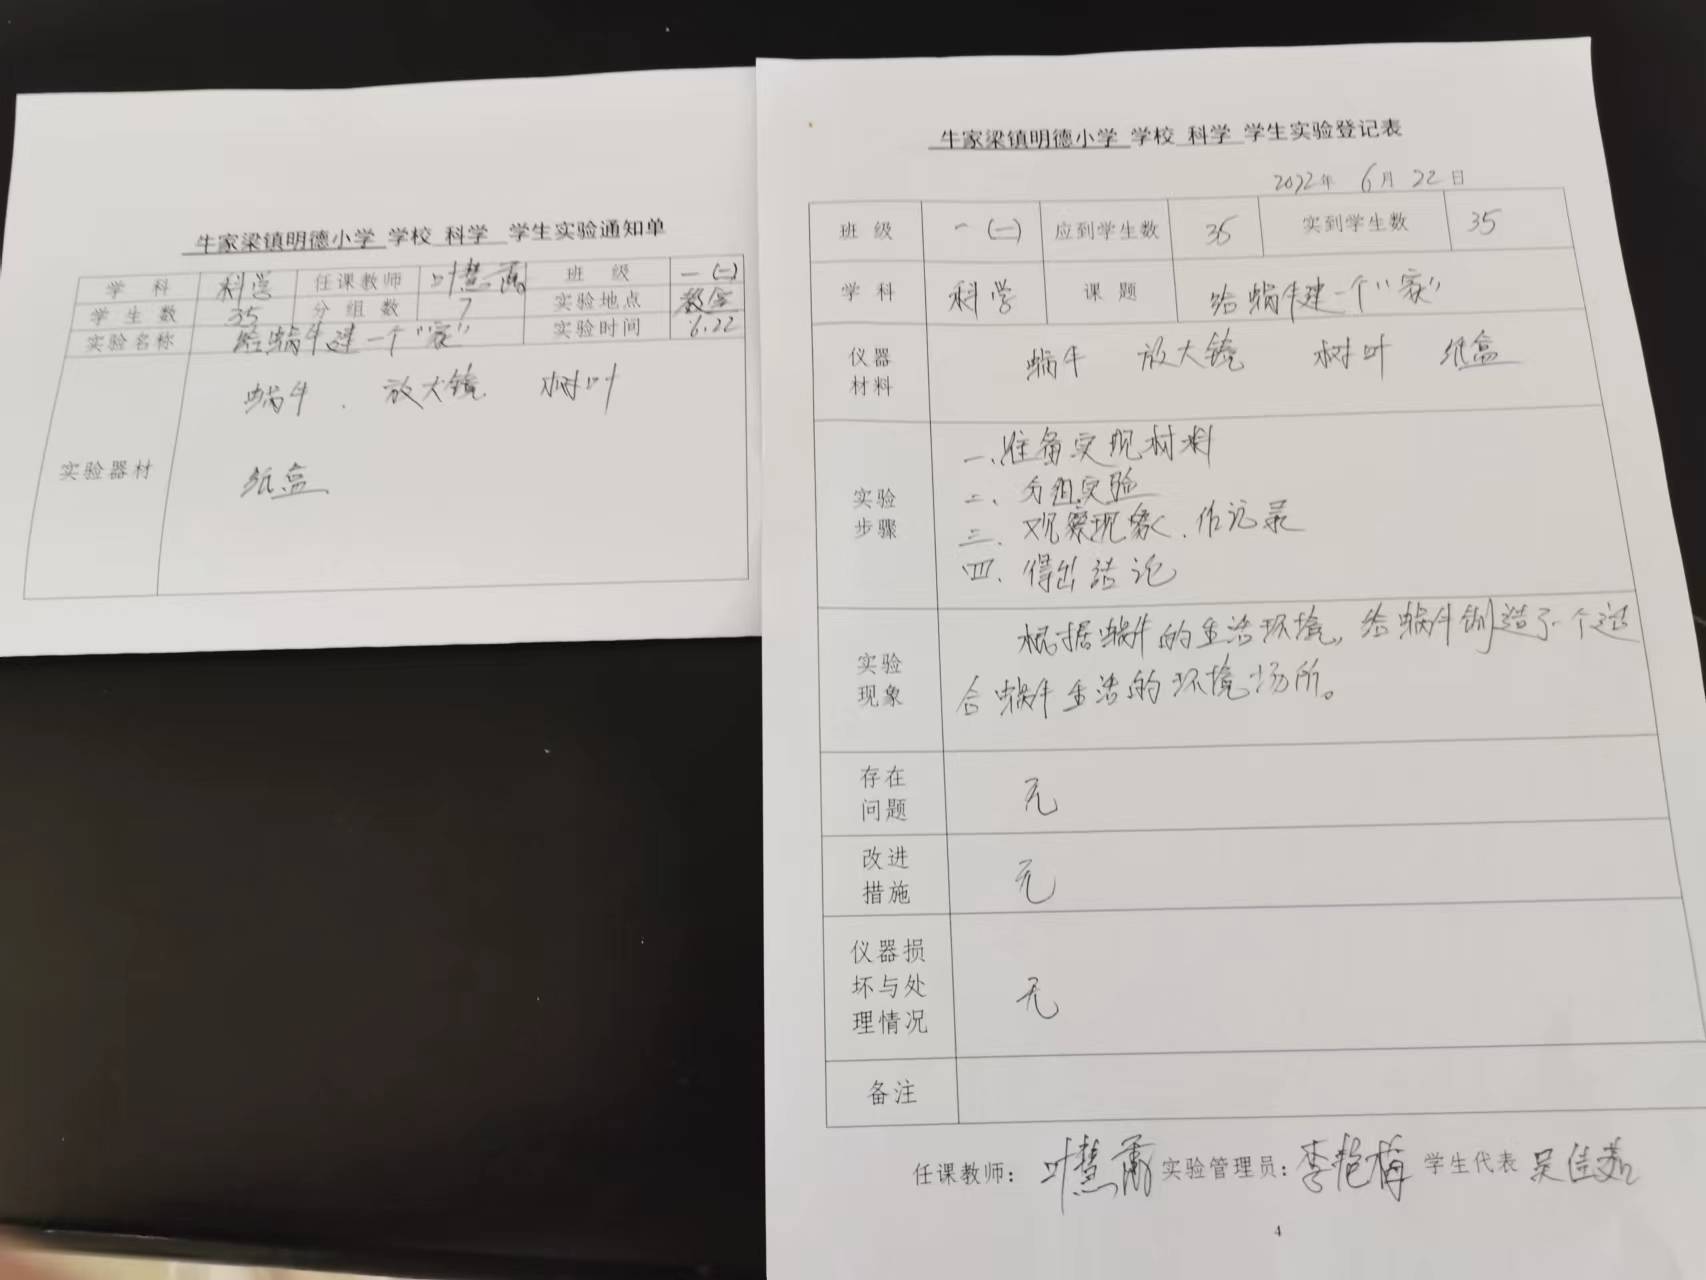 牛家梁镇明德小学 学校 科学 学生实验通知单
学科 科学 任课教师 叶慧 班级 一(二)
学生数 35 分组数 7 实验地点 教室
实验名称 给蜗牛建一个“家” 实验时间 6.22
实验器材
蜗牛、放大镜 树叶
纸盒
牛家梁镇明德小学 学校 科学 学生实验登记表
2022年 6月 22日
班级 一(二) 应到学生数 35 实到学生数 35
学科 科学 课题 给蜗牛建一个“家”
仪器
材料
蜗牛 放大镜 树叶 纸盒
实验
步骤
一、准备实现材料
二、分组实验
三、观察现象、作记录
四、得出结论
实验
现象
根据蜗牛的生活环境,给蜗牛创造了一个适
合蜗牛生活的环境场所。
存在
问题
无
改进
措施
无
仪器损
坏与处
理情况
无
备注
任课教师: 叶慧 实验管理员: 李艳梅 学生代表 吴佳
4